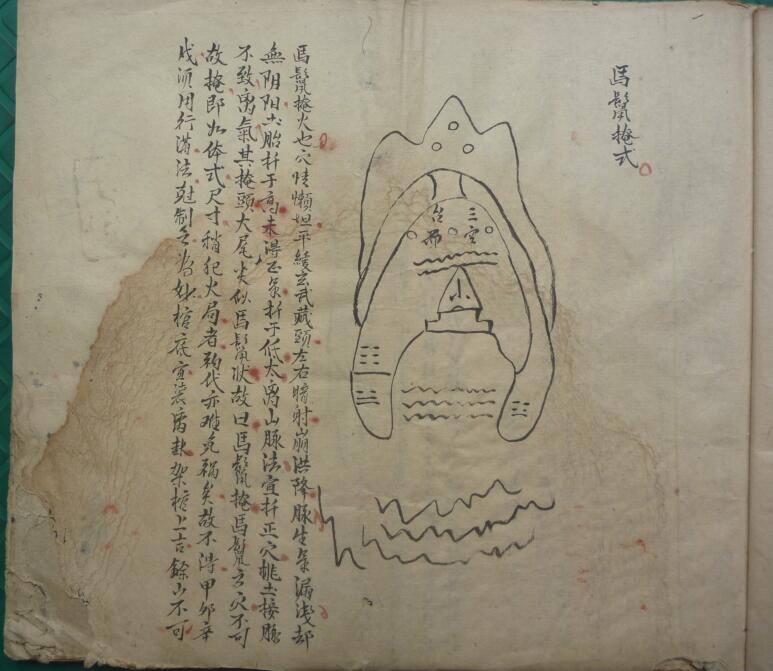 馬鬣掩式
三宮
台
小
馬鬣掩火也穴情懶坦平緩玄武藏頭左右暗射崩洪降脉生氣漏洩却
無阴阳土胎扦于高未得正氣扦于低太离山脉法宜扦正穴挑土接脉
不致离氣其掩頭大尾尖似馬鬣狀故曰馬鬣掩馬鬣之穴不可
故掩即如体式尺寸稍犯火局者殀代亦难免禍矣故不得甲卯辛
戌須用行满法尅制之為妙棺底宜装架棺上吉餘山不可